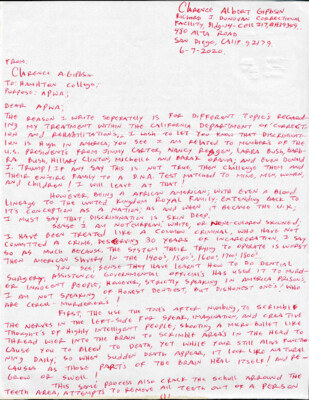 Clarence Albert Gipbsin
Richard J. Donovan Correctional
Facility,
480 Alta Road
San Diego, Calif 92179
6-7-2020
From
Clarence A. Gipbsin
To: Hamilton College;
Purpose: APWA;
Dear APWA;
The reason I write seperately is for different topics regard-
ing my treatment within the California Department of "Correct-
ian and Rehabilitations." I wish to let you know that discriminat-
ian is high in America, you see I am related to members of the
U.S. Presidents from Jimmy Carter, Nancy Reagen, Larra Bush, Barb-
Bush, Hillary Clinton, Michelle and Barak Obama; and even Donald
J. Trump! If any say this is not true, then I challenge them and
their entire family to a DNA test matched to mine, men, women,
and children! I will leave at that.
However being a African American, with even a blood
lineage to the United Kingdom Royal Family, extending back to
its conception as a nation, as and when it became the U.K;
I must say that discrimination is skin deep.
Sense I am not green, white, or none-colored skinned,
I have been treated like a common criminal, who have not
committed a crime, 30 years of incarceration, I say
so as much because, the system their trying to operate is worst
then American slavery in the 1400's, 1500's, 1600's, 1700's, 1800's.
You see sense they have learnt how to do dental
surgery, assistance governmental official's has used it to murd-
er innocent poeple, however, strictly speaking in America prisons,
I am not speaking of honest dentist, but dishonest one's! Who
are career-murderors!
First, the use the tools after numbing, to scribble
the nerves in the left-side for speak, imagination, and creative
thought's of highly intelligent people, shooting a micro-bullet like
thread over into the brain to scribble areas in the head to
cause you to bleed to death, yet while your still alive function
ning daily, so when sudden death appear, it look like natural
causes as those parts of the brain heal itself! And re-
grow or swoll!
This same process also crack the skull arround the
teeth area, attempts to remove all teeth out of a person